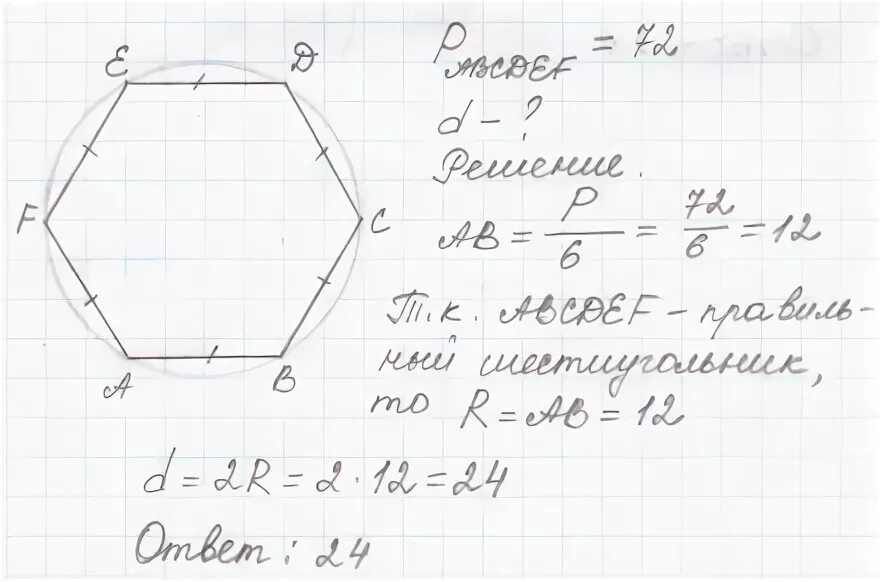 E D
F C
A B
P_ABCDEF = 72
d - ?
Решение.
AB = P/6 = 72/6 = 12
Т.к. ABCDEF - правиль-
ный шестиугольник,
то R = AB = 12
d = 2R = 2 · 12 = 24
Ответ: 24